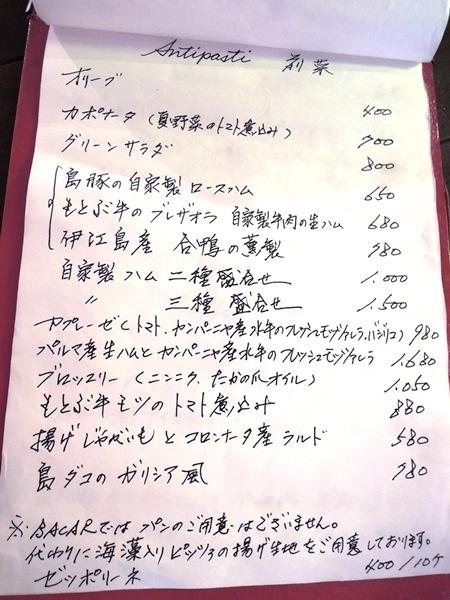 Antipasti 前菜
オリーブ 400
カポナータ (夏野菜のトマト煮込み) 900
グリーンサラダ 800
島豚の自家製 ロースハム 650
もとぶ牛の ブレザオラ 自家製牛肉の生ハム 680
伊江島産 合鴨の薫製 980
自家製 ハム 二種盛合せ 1.000
〃 三種 盛合せ 1.500
カプレーゼ (トマト、カンパーニャ産水牛のフレッシュモッツァレラ、バジリコ) 980
パルマ産生ハムとカンパーニャ産水牛のフレッシュモッツァレラ 1.680
ブロッコリー (ニンニク、たかの爪オイル) 1.050
もとぶ牛モツのトマト煮込み 880
揚げじゃがいもとコロンナータ産 ラルド 580
島ダコの ガリシア風 980
※. BACARでは パンのご用意はございません。
代わりに海藻入りピッツァの揚げ生地をご用意しております。
ゼッポリーネ 400/10ケ